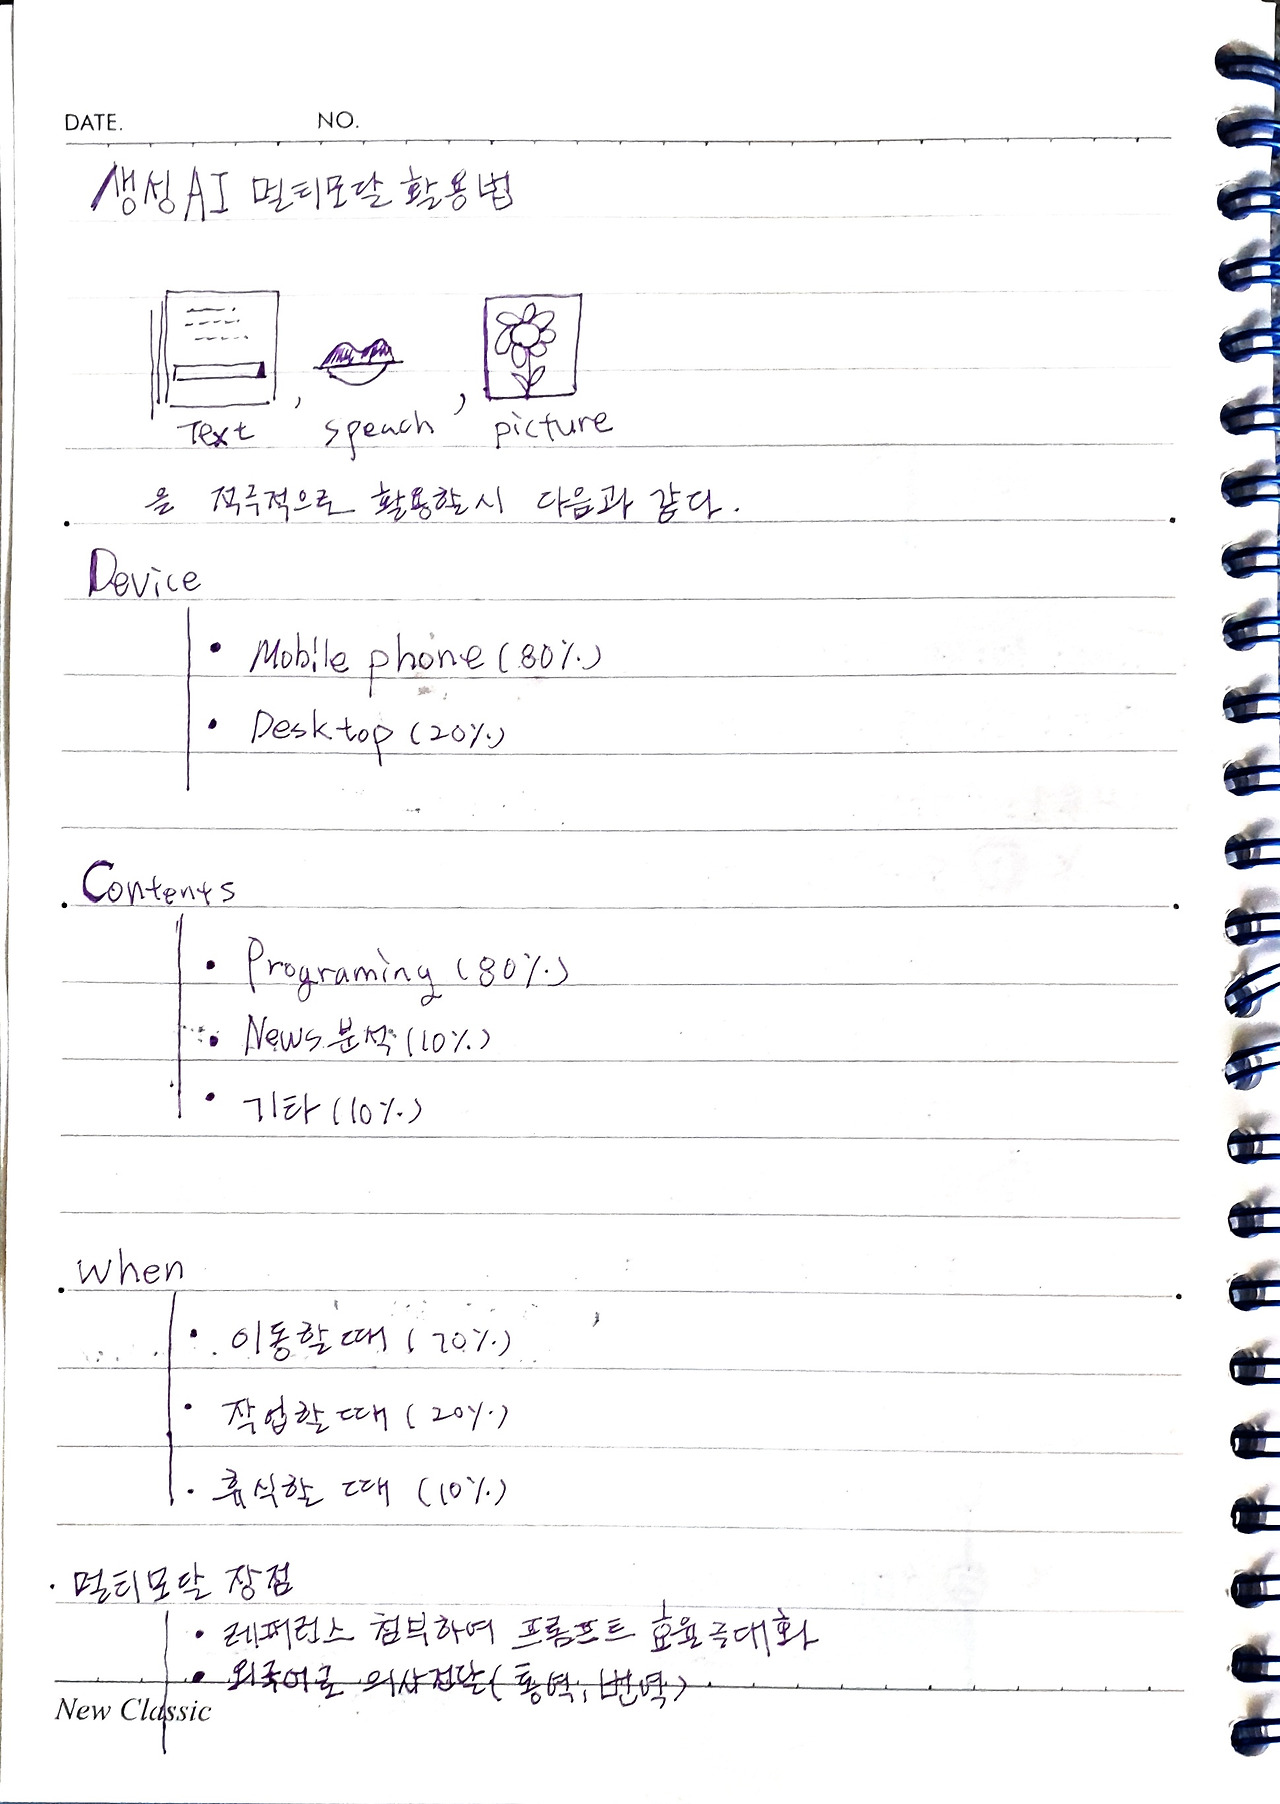 DATE. NO.
생성AI 멀티모달 활용법
Text , speach , picture
을 적극적으로 활용할시 다음과 같다.
Device
• Mobile phone (80%)
• Desktop (20%)
Contents
• Programing (80%)
• News분석 (10%)
• 기타 (10%)
When
• 이동할 때 (70%)
• 작업할 때 (20%)
• 휴식할 때 (10%)
• 멀티모달 장점
• 레퍼런스 첨부하여 프롬프트 효율극대화
• 외국어로 의사전달 (통역, 번역)
New Classic